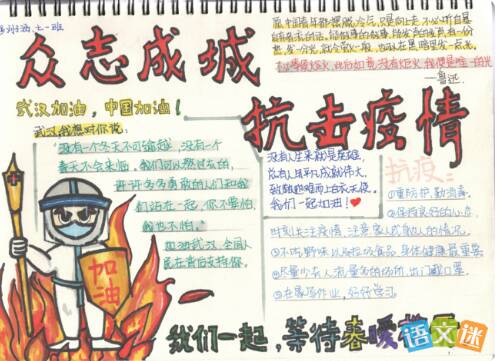 众志成城
抗击疫情
愿中国青年都摆脱冷气,只是向上走,不必听自暴
自弃者流的话。能做事的做事,能发声的发声。有一份
热,发一分光,就令萤火一般,也可以在黑暗里发一点光,
不必等候炬火。此后如竟没有炬火,我便是唯一的光
——鲁迅
武汉加油,中国加油!
武汉我想对你说:
“没有一个冬天不可逾越,没有一个
春天不会来临。我们可以
许许多多勇敢的人们和我
们站在一起,你不要怕,
我也不怕。”
加油武汉,全国人
民在背后支持你。
没有人生来就是英雄,
总有人平凡成就伟大,
致敬逆行而上白衣天使,
我们一起加油!
抗疫:
①重防护,勤消毒。
②保持良好的心态
时刻关注疫情,注意家人或身边人的情况。
③不吃野味以及垃圾食品,身体健康最重要。
④尽量少去人流量多的场所,出门戴口罩。
⑤在家写作业,好好学习。
加油
我们一起,等待春暖花
语文迷